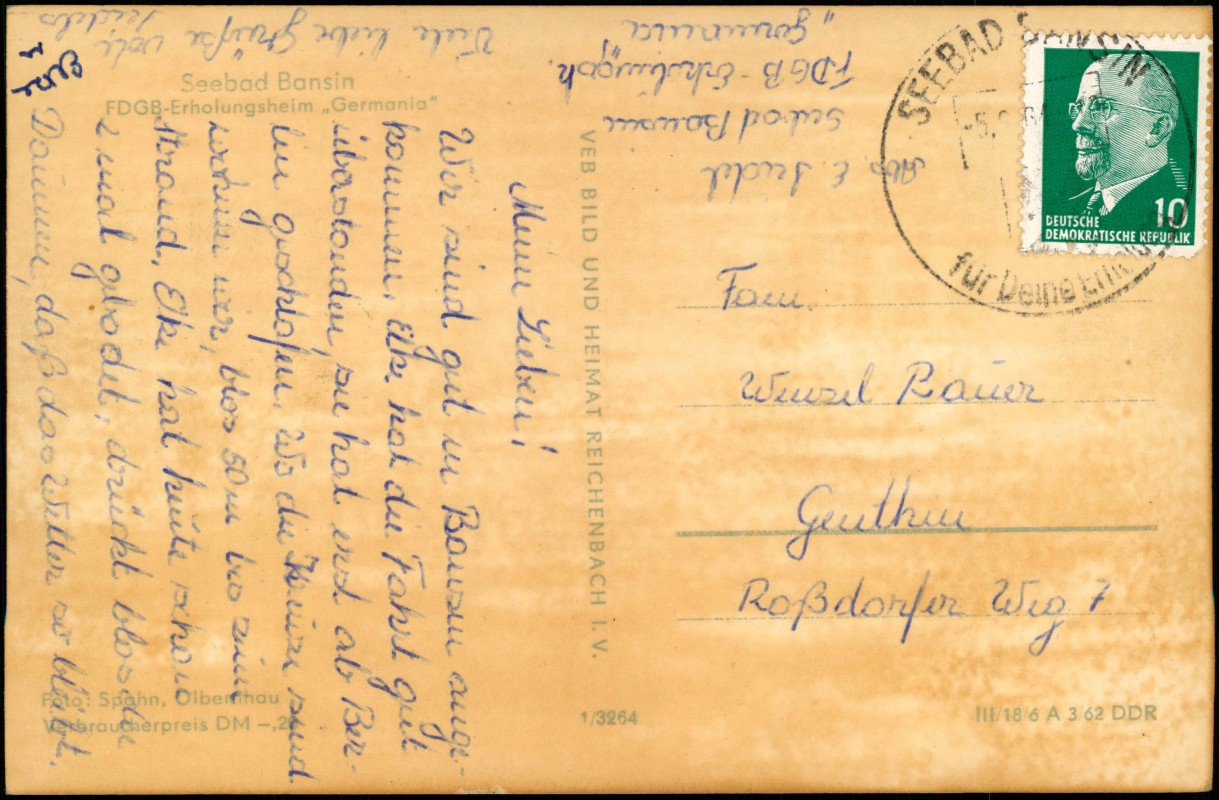 Seebad Bansin
FDGB-Erholungsheim „Germania“
Meine Lieben!
Wir sind gut in Bansin ange-
kommen. Elke hat die Fahrt gut
überstanden, sie hat erst ab Ber-
lin geschlafen. Wo die Häuser sind
wohnen wir, blos 50 m bis zum
Strand. Elke hat heute schon
2 mal gebadet, drückt blos die
Daumen, daß das Wetter so bleibt.
Viele liebe Grüße von
Seidels
Foto: Spohn, Olbernhau
Verbraucherpreis DM –,20
VEB BILD UND HEIMAT REICHENBACH I. V.
1/3264
Abs. E. Seidel
Seebad Bansin
FDGB-Erholungsh.
„Germania“
SEEBAD BANSIN
für Deine
DEUTSCHE
DEMOKRATISCHE REPUBLIK
10
Fam.
Wenzel Bauer
Genthin
Roßdorfer Weg 7
III/18 6 A 3/62 DDR